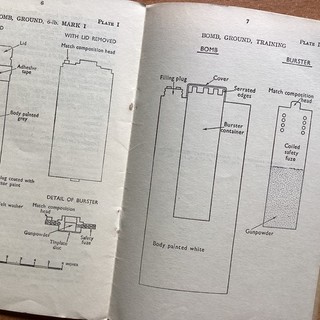 6
BOMB, GROUND, 6-lb. MARK I
PLATE I
WITH LID REMOVED
Lid
Match composition
head
Adhesive
tape
Body painted
grey
plug coated with
felt washer
DETAIL OF BURSTER
Match composition
head
Gunpowder
Tinplate
disc
Safety
fuze
INCHES
7
BOMB, GROUND, TRAINING
PLATE
BOMB
BURSTER
Filling plug
Cover
Serrated
edges
Match composition
head
Burster
container
Coiled
safety
fuze
Body painted white
Gunpowder